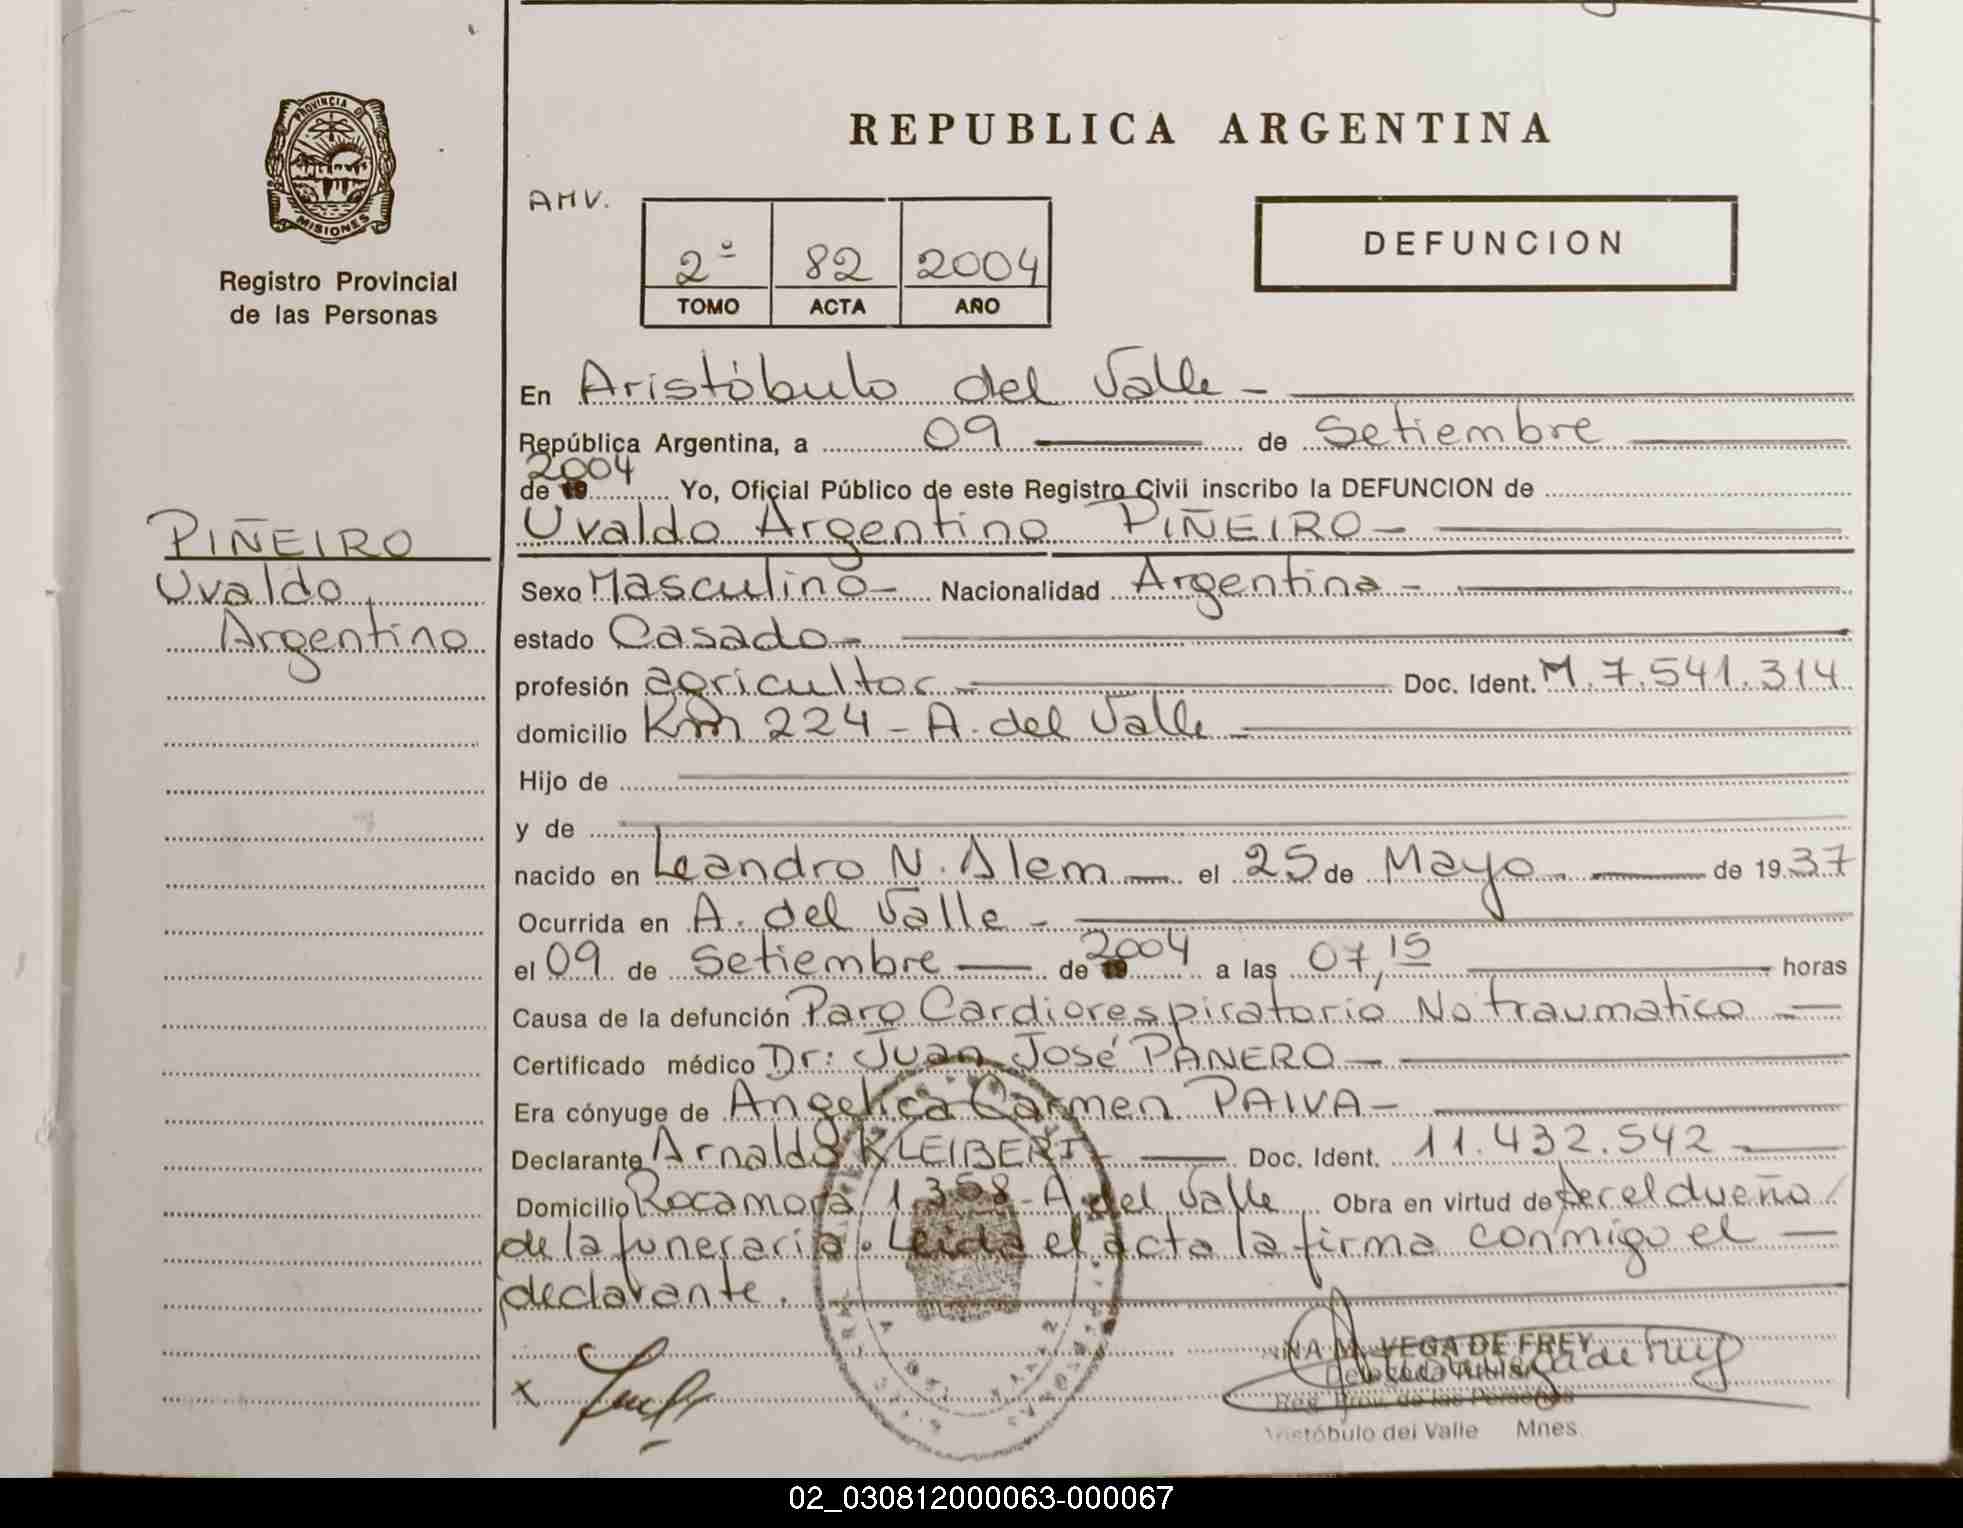 PROVINCIA DE
MISIONES
Registro Provincial
de las Personas
REPUBLICA ARGENTINA
AMV.
2º 82 2004
TOMO ACTA AÑO
DEFUNCION
En Aristóbulo del Valle -
República Argentina, a 09 de Setiembre
2004
de 19 Yo, Oficial Público de este Registro Civil inscribo la DEFUNCION de
Uvaldo Argentino PIÑEIRO -
PIÑEIRO
Uvaldo
Argentino
Sexo Masculino - Nacionalidad Argentina -
estado Casado -
profesión agricultor - Doc. Ident. M. 7.541.314
domicilio Km 224 - A. del Valle -
Hijo de
y de
nacido en Leandro N. Alem el 25 de Mayo de 1937
Ocurrida en A. del Valle -
el 09 de Setiembre de 19 2004 a las 07,15 horas
Causa de la defunción Paro Cardiorespiratorio No traumatico -
Certificado médico Dr: Juan José PANERO -
Era cónyuge de Angelica Carmen PAIVA -
Declarante Arnaldo KLEIBERT - Doc. Ident. 11.432.542
Domicilio Rocamora 1.358 - A. del Valle Obra en virtud de ser el dueño
de la funeraria. Leida el acta la firma conmigo el
declarante.
X
NA M. VEGA DE FREY
Reg. Prov. de las Personas
Aristóbulo del Valle Mnes.
02_030812000063-000067